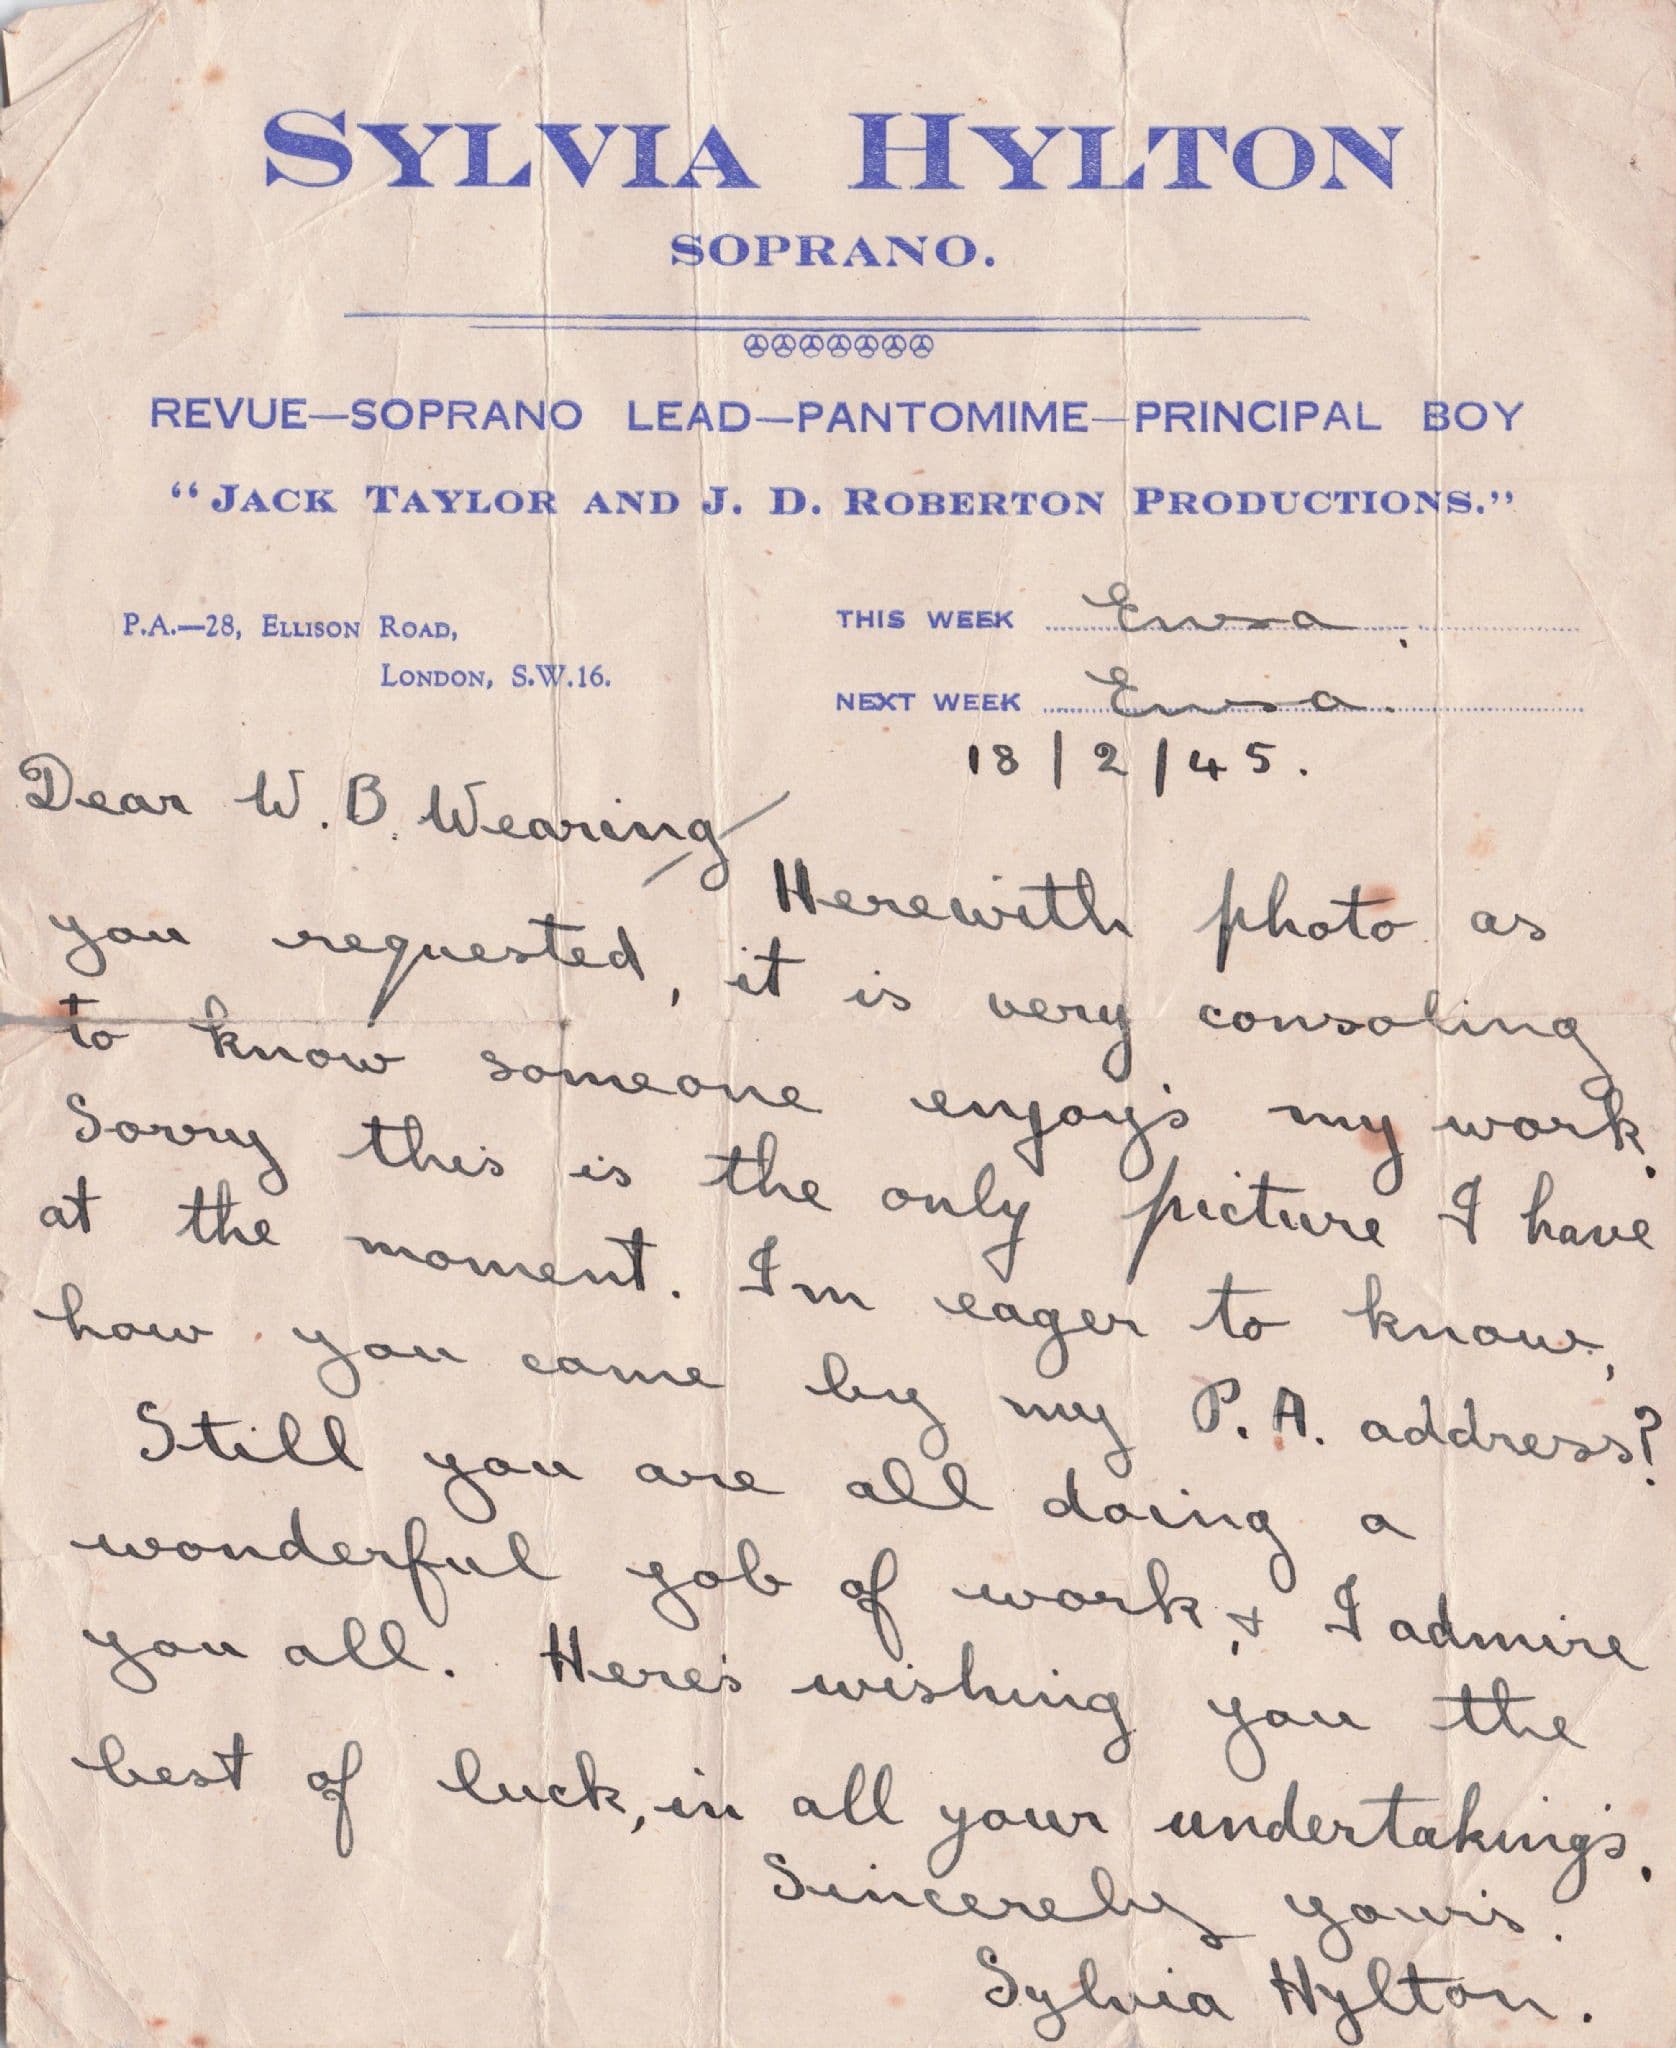 SYLVIA HYLTON
SOPRANO.
REVUE—SOPRANO LEAD—PANTOMIME—PRINCIPAL BOY
“JACK TAYLOR AND J. D. ROBERTON PRODUCTIONS.”
P.A.—28, ELLISON ROAD,
LONDON, S.W.16.
THIS WEEK Ensa.
NEXT WEEK Ensa.
18/2/45.
Dear W. B. Wearing
Herewith photo as
you requested, it is very consoling
to know someone enjoy's my work.
Sorry this is the only picture I have
at the moment. I'm eager to know,
how you came by my P.A. address?
Still you are all doing a
wonderful job of work, & I admire
you all. Here's wishing you the
best of luck, in all your undertaking's.
Sincerely your's.
Sylvia Hylton.